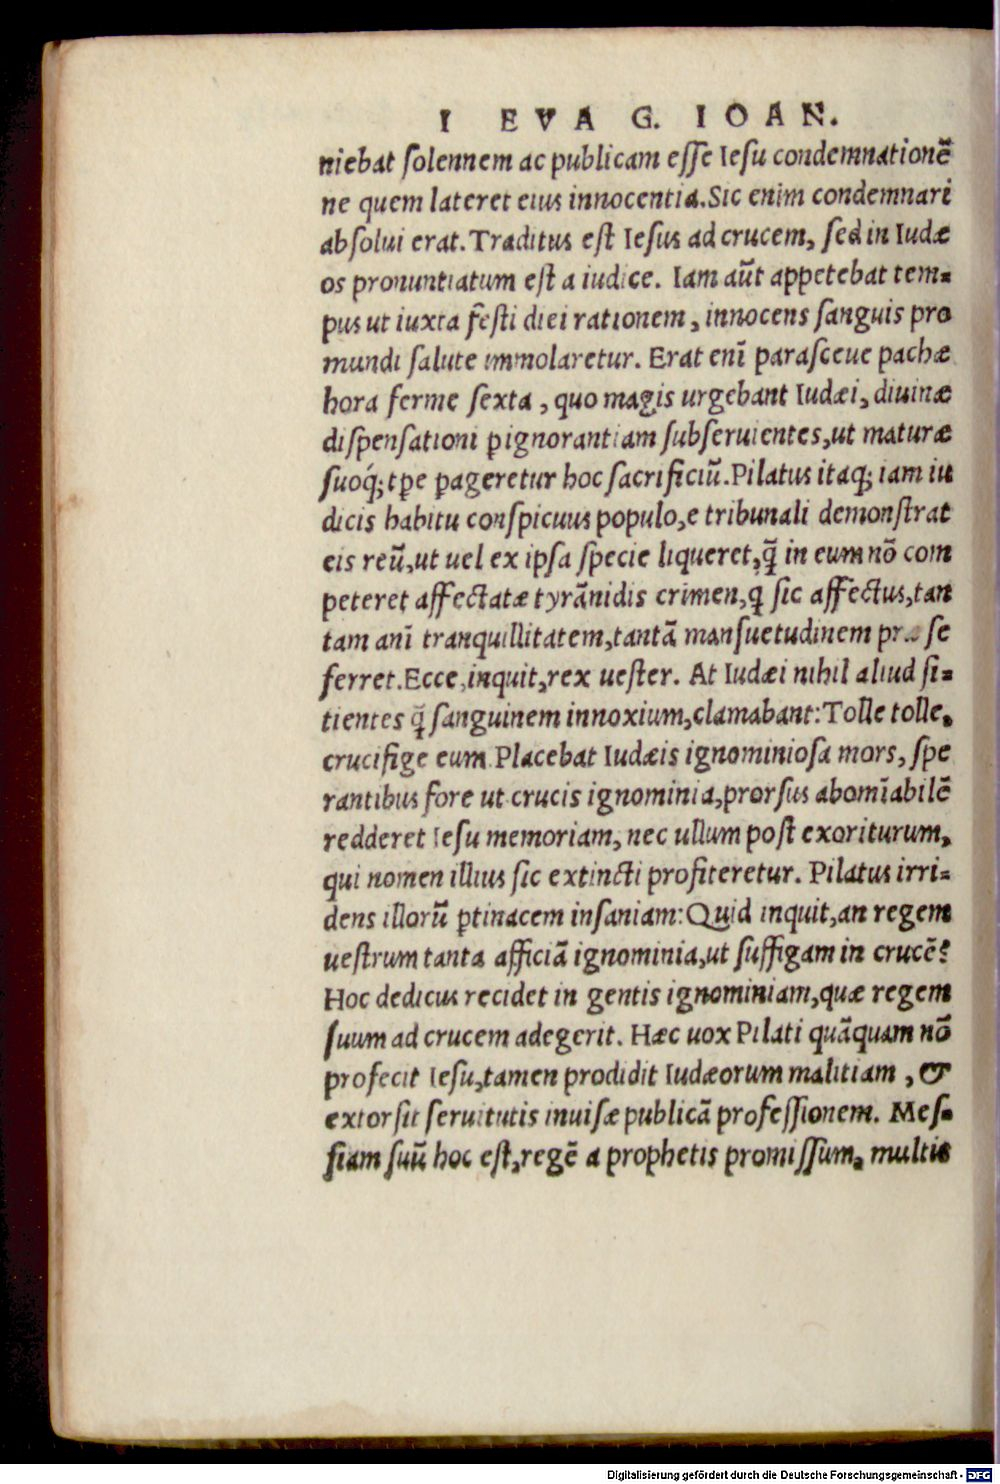 I EVA G. IOAN.
niebat ſolennem ac publicam eſſe Ieſu condemnationẽ
ne quem lateret eius innocentia. Sic enim condemnari
abſolui erat. Traditus eſt Ieſus ad crucem, ſed in Iudæ
os pronuntiatum est a iudice. Iam aũt appetebat tem-
pus ut iuxta feſti diei rationem, innocens ſanguis pro
mundi ſalute immolaretur. Erat enĩ paraſceue pachæ
hora ferme ſexta, quo magis urgebant Iudæi, diuinæ
diſpenſationi ꝑ ignorantiam ſubſeruientes, ut maturæ
ſuoq́; tꝑe ꝑageretur hoc ſacrificiũ. Pilatus itaq; iam iu
dicis habitu conſpicuus populo, e tribunali demonſtrat
eis reũ, ut uel ex ipſa ſpecie liqueret, q̃ in eum nõ com
peteret affectatæ tyrãnidis crimen, q ſic affectus, tan
tam anĩ tranquillitatem, tantã manſuetudinem præ ſe
ferret. Ecce, inquit, rex ueſter. At Iudæi nihil aliud ſi-
tientes q̃ ſanguinem innoxium, clamabant: Tolle tolle,
crucifige eum. Placebat Iudæis ignominioſa mors, ſpe
rantibus fore ut crucis ignominia, prorſus abomĩabilẽ
redderet Ieſu memoriam, nec ullum poſt exoriturum,
qui nomen illius ſic extincti profiteretur. Pilatus irri-
dens illorũ ꝑtinacem inſaniam: Quid inquit, an regem
ueſtrum tanta afficiã ignominia, ut ſuffigam in crucẽ?
Hoc dedicus recidet in gentis ignominiam, quæ regem
ſuum ad crucem adegerit. Hæc uox Pilati quãquam nõ
profecit Ieſu, tamen prodidit Iudæorum malitiam, &
extorſit ſeruitutis inuiſæ publicã profeſſionem. Meſ-
ſiam ſuũ hoc eſt, regẽ a prophetis promiſſum, multis
Digitalisierung gefördert durch die Deutsche Forschungsgemeinschaft - DFG